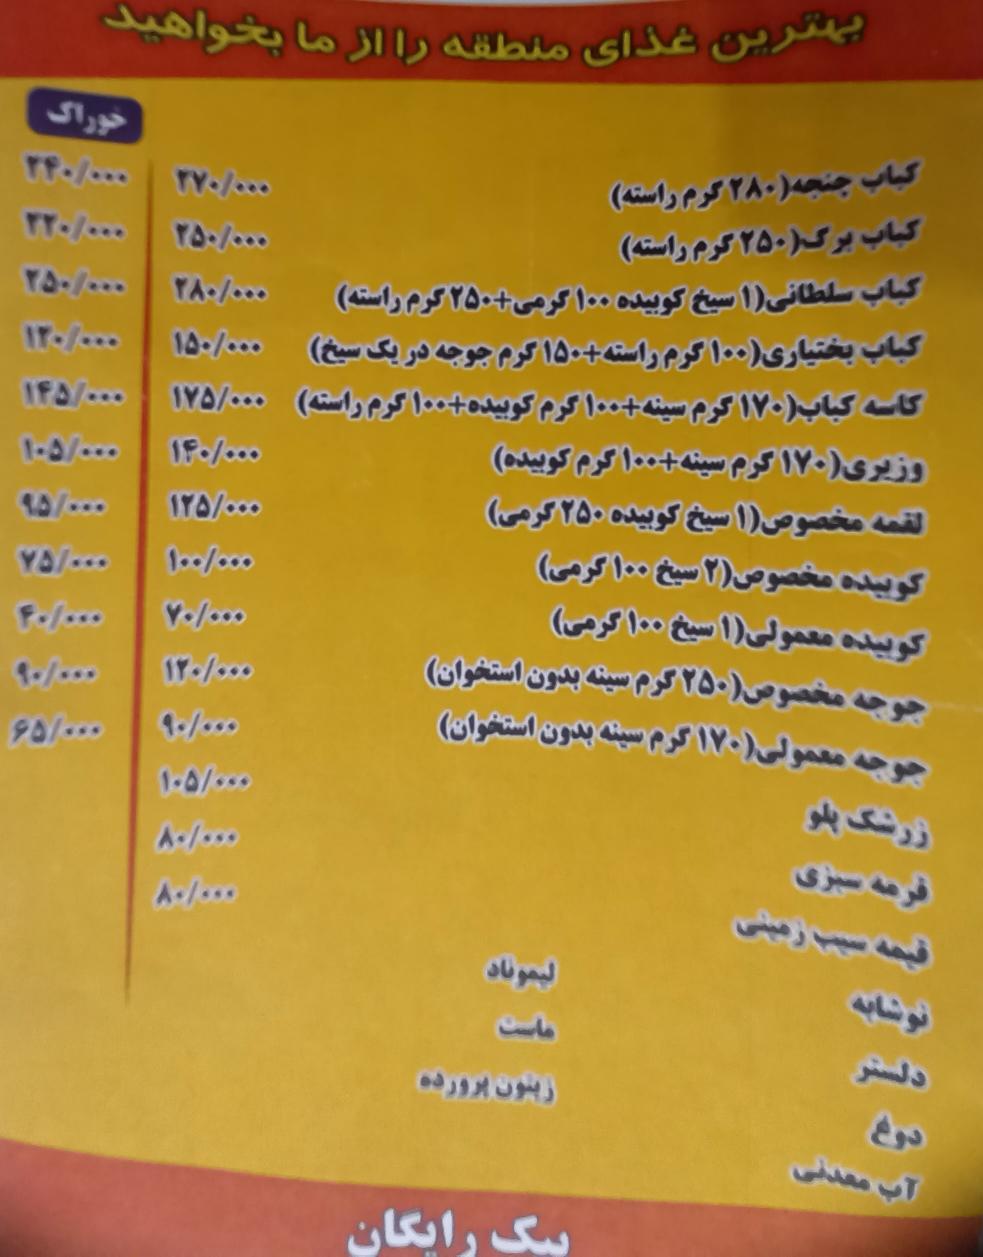 بهترین غذای منطقه را از ما بخواهید
خوراک
کباب جنجه(۲۸۰ گرم راسته) ۲۷۰/۰۰۰ ۲۴۰/۰۰۰
کباب برگ(۲۵۰ گرم راسته) ۲۵۰/۰۰۰ ۲۲۰/۰۰۰
کباب سلطانی(۱ سیخ کوبیده ۱۰۰ گرمی+۲۵۰ گرم راسته) ۲۸۰/۰۰۰ ۲۵۰/۰۰۰
کباب بختیاری(۱۰۰ گرم راسته+۱۵۰ گرم جوجه در یک سیخ) ۱۵۰/۰۰۰ ۱۲۰/۰۰۰
کاسه کباب(۱۷۰ گرم سینه+۱۰۰ گرم کوبیده+۱۰۰ گرم راسته) ۱۷۵/۰۰۰ ۱۴۵/۰۰۰
وزیری(۱۷۰ گرم سینه+۱۰۰ گرم کوبیده) ۱۴۰/۰۰۰ ۱۰۵/۰۰۰
لقمه مخصوص(۱ سیخ کوبیده ۲۵۰ گرمی) ۱۲۵/۰۰۰ ۹۵/۰۰۰
کوبیده مخصوص(۲ سیخ ۱۰۰ گرمی) ۱۰۰/۰۰۰ ۷۵/۰۰۰
کوبیده معمولی(۱ سیخ ۱۰۰ گرمی) ۷۰/۰۰۰ ۴۰/۰۰۰
جوجه مخصوص(۲۵۰ گرم سینه بدون استخوان) ۱۲۰/۰۰۰ ۹۰/۰۰۰
جوجه معمولی(۱۷۰ گرم سینه بدون استخوان) ۹۰/۰۰۰ ۶۵/۰۰۰
زرشک پلو ۱۰۵/۰۰۰
قرمه سبزی ۸۰/۰۰۰
قیمه سیب زمینی ۸۰/۰۰۰
نوشابه لیموناد
دلستر ماست
دوغ زیتون پرورده
آب معدنی
پیک رایگان